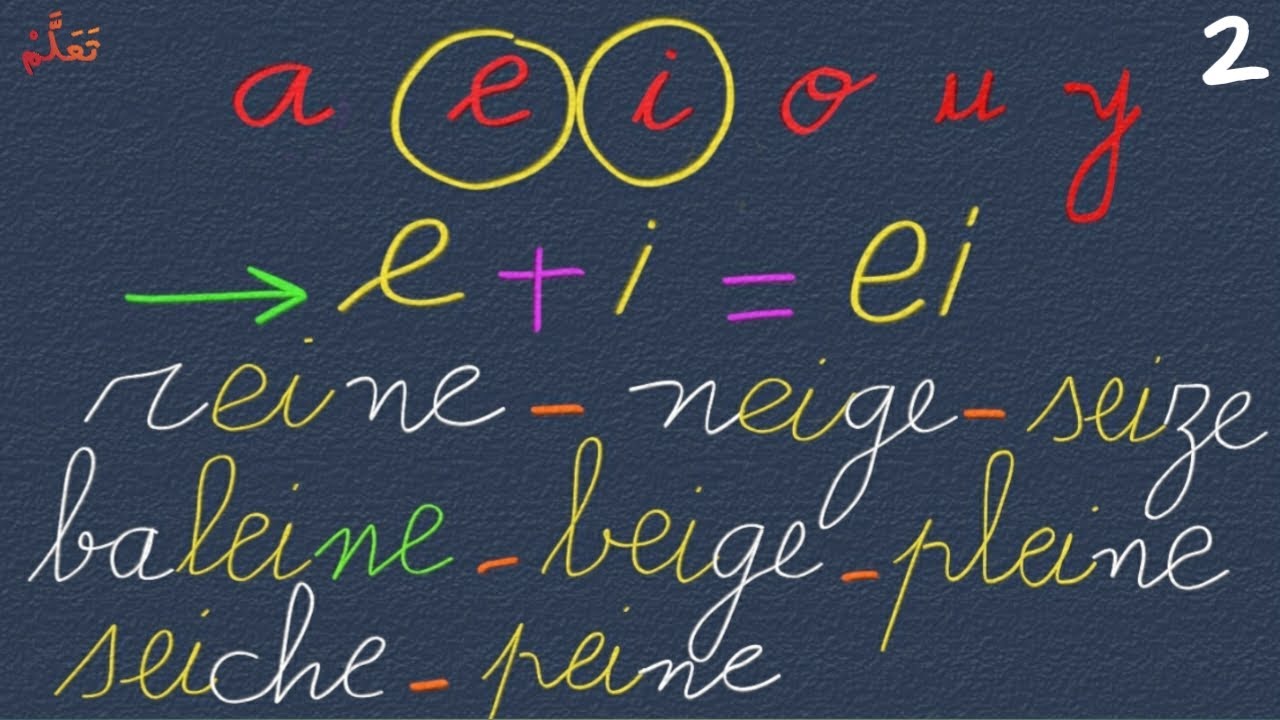 تَعَلَّمْ
2
a e i o u y
e + i = ei
reine - neige - seize
baleine - beige - pleine
seiche - peine